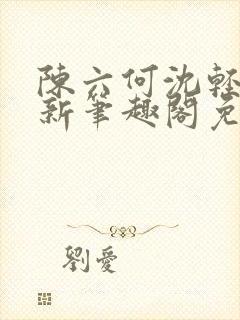 陳六何沈輕
新筆趣閣免
劉愛